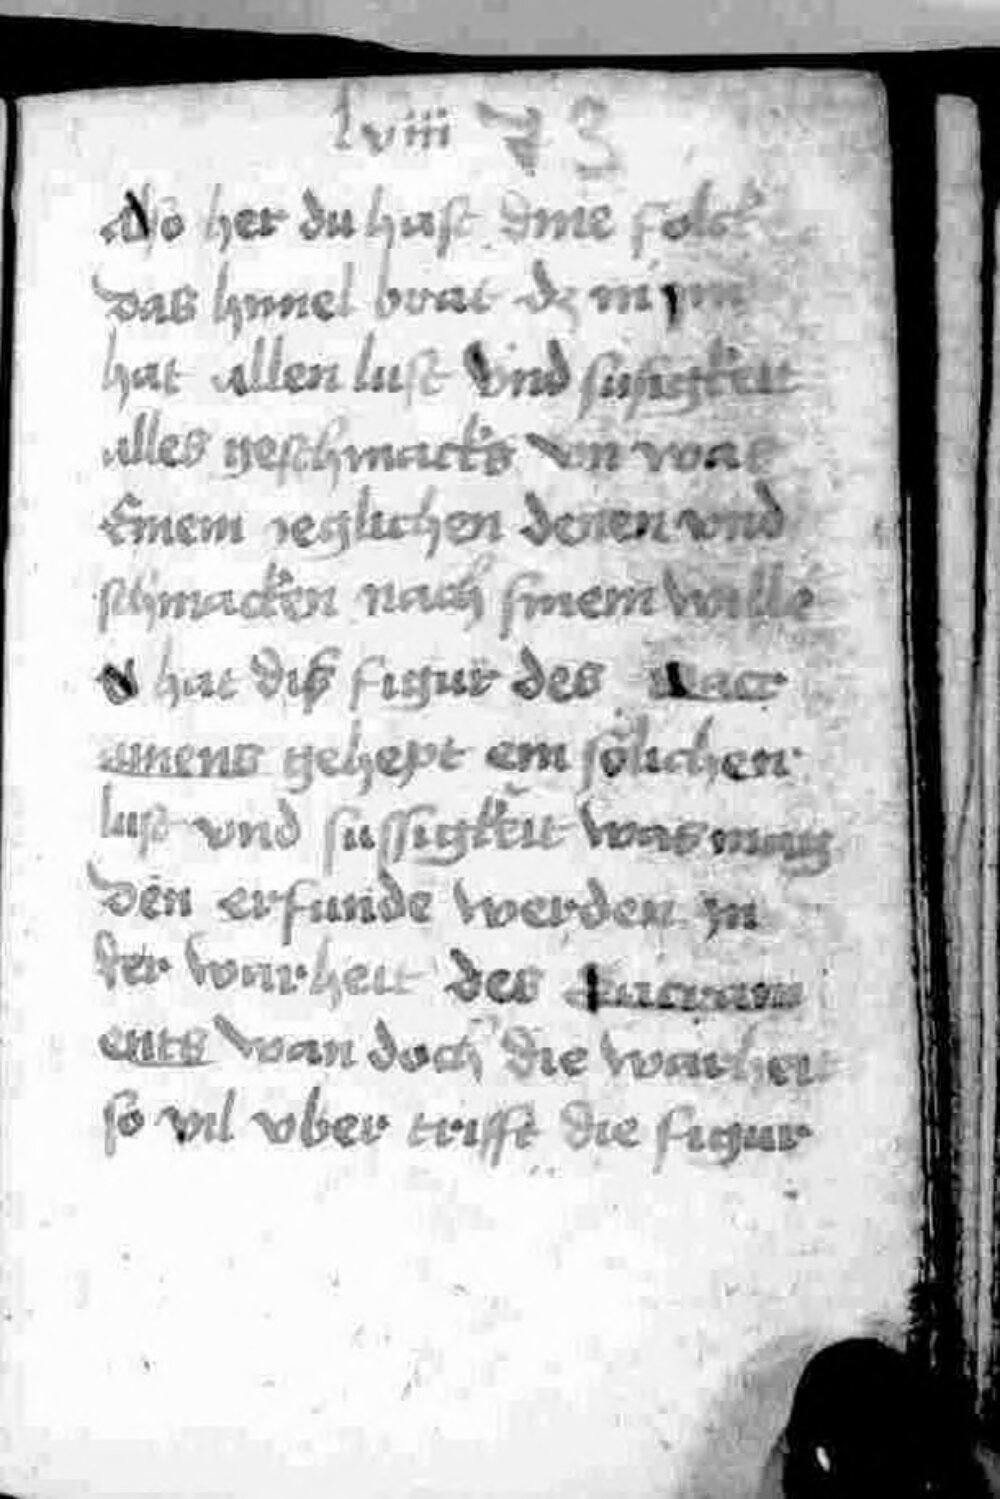 lviii 73
Also her du hast dine folck
das himel brat dz in im
hat allen lust vnd susigkeit
alles geschmacks vn was
Einem ieglichen denen vnd
schmacken nach sinem wille
hat diß figur des Sacr
amens gehept ein sölichen
lust vnd sussigkeit was mag
den erfunde werden in
der warheit des Sacram
ents wan doch die warheit
so vil vber trifft die figur